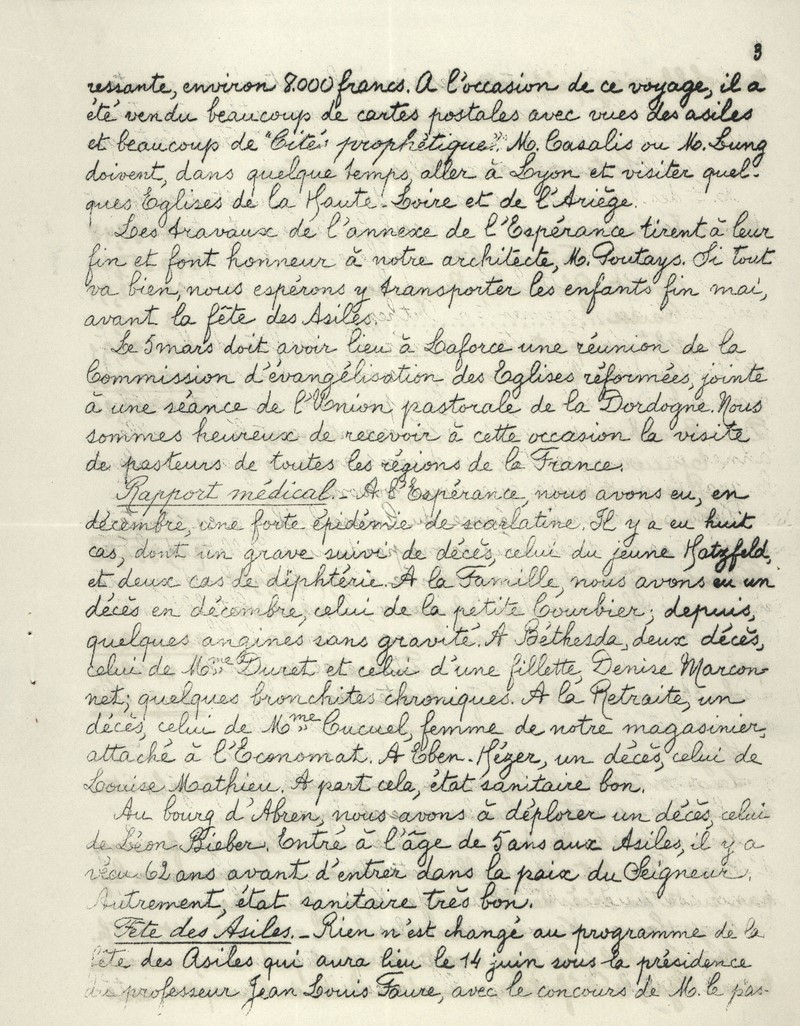 3
ressante, environ 8.000 francs. A l'occasion de ce voyage, il a
été vendu beaucoup de cartes postales avec vues des asiles
et beaucoup de "Cités prophétiques". M. Casalis ou M. Lung
doivent, dans quelque temps, aller à Lyon et visiter quel-
ques Eglises de la Haute-Loire et de l'Ariège.
Les travaux de l'annexe de l'Espérance tirent à leur
fin et font honneur à notre architecte, M. Poutays. Si tout
va bien, nous espérons y transporter les enfants fin mai,
avant la fête des Asiles.
Le 5 mars doit avoir lieu à Laforce une réunion de la
Commission d'évangélisation des Eglises réformées, jointe
à une séance de l'Union pastorale de la Dordogne. Nous
sommes heureux de recevoir à cette occasion la visite
de pasteurs de toutes les régions de la France.
Rapport médical. - A l'Espérance, nous avons eu, en
décembre, une forte épidémie de scarlatine. Il y a eu huit
cas, dont un grave suivi de décès, celui du jeune Hatzfeld,
et deux cas de diphtérie. A la Famille, nous avons eu un
décès en décembre, celui de la petite Courbier; depuis,
quelques angines sans gravité. A Béthesda, deux décès,
celui de Mme Duret et celui d'une fillette, Denise Marcon-
net; quelques bronchites chroniques. A la Retraite, un
décès, celui de Mme Cucuel, femme de notre magasinier,
attaché à l'Economat. A Eben-Hézer, un décès, celui de
Louise Mathieu. A part cela, état sanitaire bon.
Au bourg d'Abren, nous avons à déplorer un décès, celui
de Léon Bieber. Entré à l'âge de 5 ans aux Asiles, il y a
vécu 62 ans avant d'entrer dans la paix du Seigneur.
Autrement, état sanitaire très bon.
Fête des Asiles. - Rien n'est changé au programme de la
fête des Asiles qui aura lieu le 14 juin sous la présidence
du professeur Jean Louis Faure, avec le concours de M. le pas-